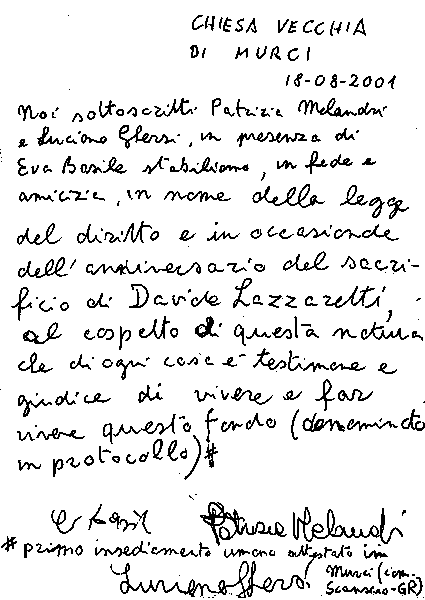 CHIESA VECCHIA
DI MURCI
18-08-2001
Noi sottoscritti Patrizia Melandri
e Luciano Ghersi, in presenza di
Eva Basile stabiliamo, in fede e
amicizia, in nome della legge
del diritto e in occasione
dell'anniversario del sacri-
ficio di Davide Lazzaretti,
al cospetto di questa natura
che di ogni cosa è testimone e
giudice di vivere e far
vivere questo fondo (denominato
in protocollo)#
Patrizia Melandri
# primo insediamento umano attestato in
Luciano Ghersi Murci (com.
Scansano-GR)